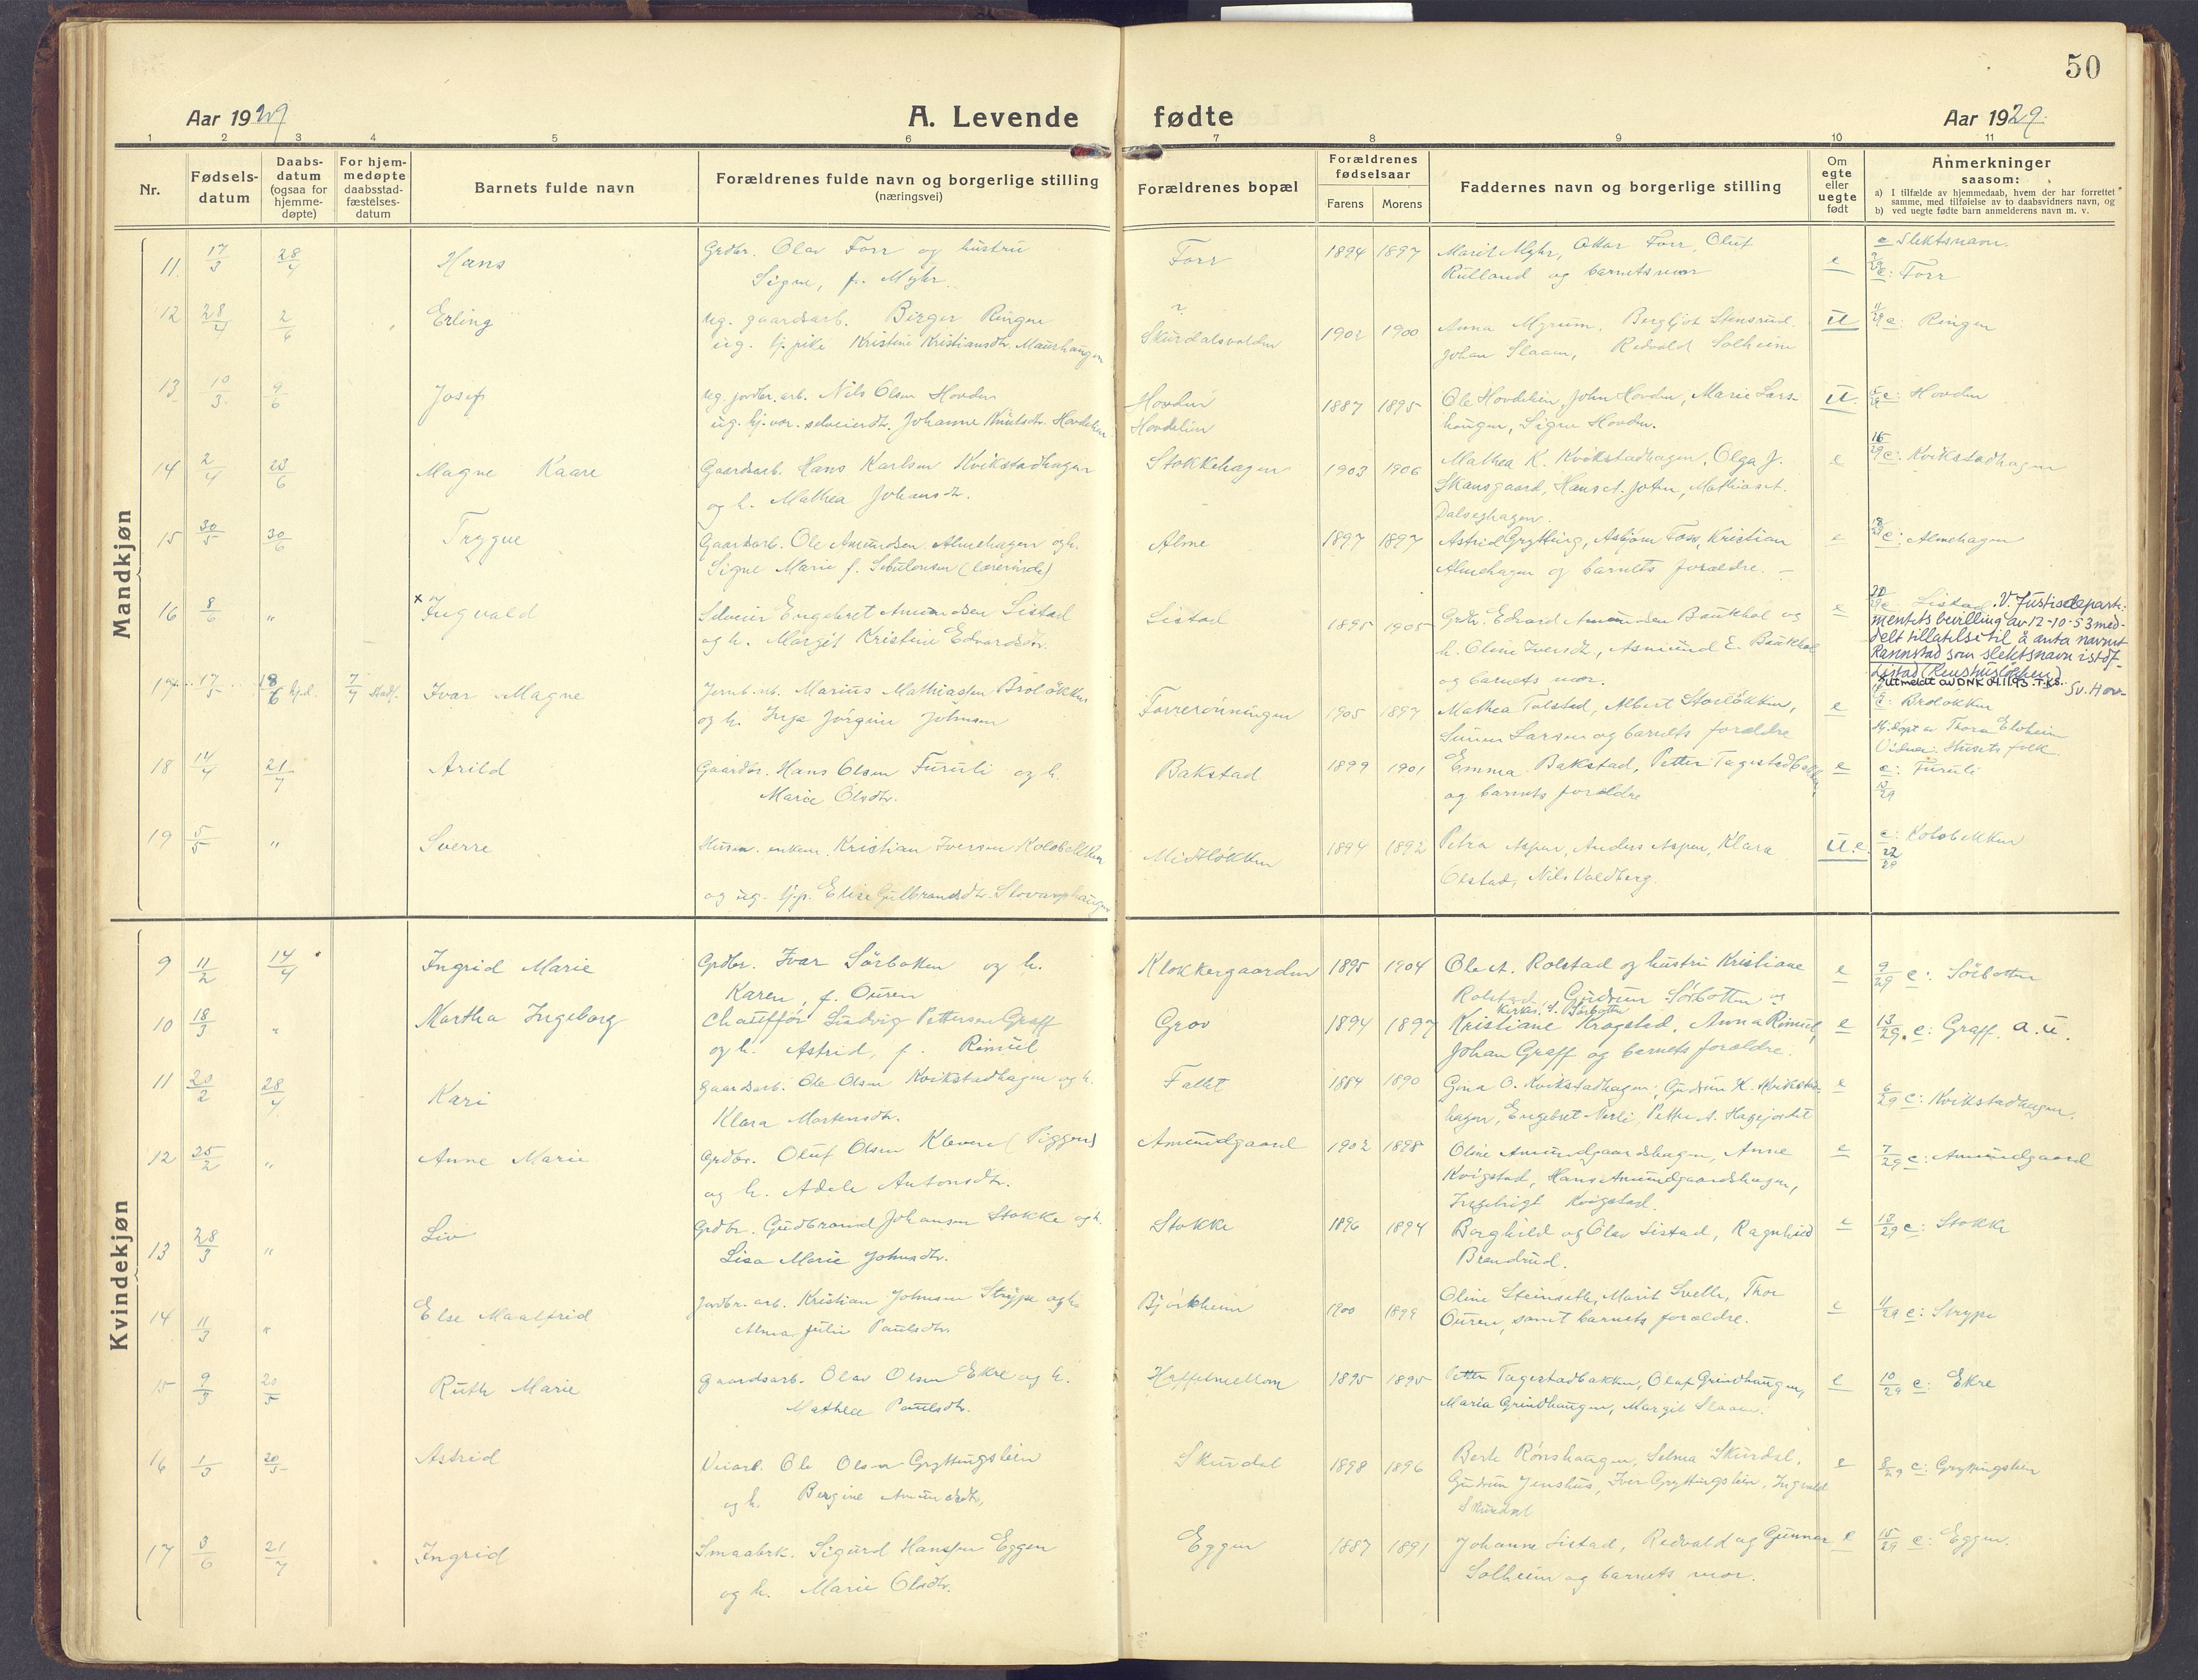 50
Aar 1929
A. Levende fødte
Aar 1929.
1 2 3 4 5 6 7 8 9 10 11
Nr.
Fødsels-
datum
Daabs-
datum
(ogsaa for
hjemme-
døpte)
For hjem-
medøpte
daabsstad-
fæstelses-
datum
Barnets fulde navn
Forældrenes fulde navn og borgerlige stilling
(næringsvei)
Forældrenes bopæl
Forældrenes
fødselsaar
Farens Morens
Faddernes navn og borgerlige stilling
Om
egte
eller
uegte
født
Anmerkninger
saasom:
a) I tilfælde av hjemmedaab, hvem der har forrettet
samme, med tilføielse av to daabsvidners navn, og
b) ved uegte fødte barn anmelderens navn m. v.
Mandkjøn
11. 17/3 28/4 Hans Grdbr. Olav Forr og hustru Forr 1894 1897 Marit Myhr, Ottar Forr, Oluf e e Slektsnavn.
Signe, f. Myhr. Rulland og barnets mor e: Forr
12 28/4 2/6 Erling ug. gaardsarb. Birger Ringen Skurdalsvolden 1902 1900 Anna Myrum, Bergljot Stensrud. U 11/29 e: Ringen
ug. tj.pike Kristine Kristiansdtr. Maurhaugen Johan Slaaen, Redvald Solheim
13 10/3 9/6 Josef ug. jordbr. arb. Nils Olsen Hovden Hovden 1887 1895 Ole Hovdelien, John Hovden, Marie Lars- U. e: Hovden
ug. hj. vær. selveierdtr. Johanne Knutsdtr. Hovdelien Hovdelien haugen, Signe Hovden.
14 2/4 23/6 Magne Kaare Gaardsarb. Hans Karlsen Kvikstadhagen Stokkehagen 1903 1906 Mathea K. Kvikstadhagen, Olga J. e 16/29 e: Kvikstadhagen
og h. Mathea Johansdtr. Skansgaard, Hans og John, Mathias
Dalseghagen.
15 30/5 30/6 Trygve Gaardsarb. Ole Amundsen Almehagen og h. Alme 1897 1897 Astrid Grytting, Asbjørn Foss, Kristian e 18/29 e: Almehagen
Signe Marie f. Sebulonsen (lærerinde) Almehagen og barnets forældre. –
16 8/6 " x Ingvald Selveier Engebret Amundsen Listad Listad 1895 1905 Grdbr. Edvard Amundsen Baukhol og e 20/29 e Listad. V. Justisdeparte-
og h. Margit Kristine Edvardsdtr. h. Oline Iversdtr, Asmund E. Baukhol mentets bevilling av 12-10-53 med-
og barnets mor. delt tillatelse til å anta navnet
Rannstad som slektsnavn istdf.
Listad (Reushusløkken)
Utmeldt av DNK 04.11.93. T.K.S.
Sv. Hov-
17 17/5 18/6 hj.d. 7/7 stadf. Ivar Magne Jernb. arb. Marius Mathiassen Broløkken Forrerønningen 1905 1897 Mathea Tolstad, Albert Storløkken, e e: Broløkken
og h. Inga Jørgine Johnsen Simen Larsen og barnets forældre Hj. døpt av Thora Elvheim
Vidner: Husets folk.
18 14/4 21/7 Arild Gaardbr. Hans Olsen Furuli og h. Bakstad 1899 1901 Emma Bakstad, Petter Tagestadbakken, e e: Furuli
Marie Olsdtr. og barnets forældre
19 5/5 " Sverre Husm. enkem. Kristian Iversen Kolobekken Midtløkken 1894 1892 Petra Aspen, Anders Aspen, Klara U.e. e: Kolobekken
og ug. tj.p. Elise Gulbrandsdtr. Slovarphaugen Olstad, Nils Voldberg. 22/29
Kvindekjøn
9 11/2 14/4 Ingrid Marie Grdbr. Ivar Sørbotten og h. Klokkergaarden 1895 1904 Ole A. Rolstad og hustru Kristiane e 9/29 e: Sørbotten
Karen, f. Ouren Rolstad, Gudrun Sørbotten og
Kirkes. S. Sørbotten
10 18/3 " Martha Ingeborg Chauffør Ludvig Pettersen Graff Grov 1894 1897 Kristiane Krogstad, Anna Rimul, e 13/29. e: Graff. a. u.
og h. Astrid, f. Rimul Johan Graff og barnets forældre.
11 20/2 28/4 Kari gaardsarb. Ole Olsen Kvikstadhagen og h. Fallet 1884 1890 Gina O. Kvikstadhagen, Gudrun K. Kvikstad- e 6/29 e: Kvikstadhagen.
Klara Mortensdtr. hagen, Engebret Nerli, Petter A. Hagejordet
12 25/2 " Anne Marie Grdbr. Oluf Olsen Kleven (Piggens) Amundgaard 1902 1898 Oline Amundgaardshagen, Anne e 7/29 e: Amundgaard
og h. Adele Antonsdtr. Kvigstad, Hans Amundgaardshagen,
Ingebrigt Kvigstad.
13 28/3 " Liv Grdbr. Gudbrand Johansen Stokke og h. Stokke 1896 1894 Borghild og Olav Listad, Ragnhild e 12/29 e: Stokke
Lisa Marie Johnsdtr. Brendrud.
14 11/3 " Else Maalfrid Jordbr. arb. Kristian Johnsen Strype og h. Bjørkheim 1900 1899 Oline Steinseth, Marit Svelle, Thor e 11/29 e: Strype
Alma Julie Paulsdtr. Ouren, samt barnets forældre.
15 9/3 20/5 Ruth Marie gaardsarb. Olav Olsen Ekre og h. Haffelmellom 1895 1895 Petter Tagestadbakken, Olaf Grindhaugen, e 10/29 e: Ekre
Mathea Paulsdtr. Maria Grindhaugen, Margit Slaaen.
16 1/3 20/5 Astrid Veiarb. Ole Olsen Gryttingslien Skurdal 1898 1896 Berte Rønshaugen, Selma Skurdal, e 8/29 e: Gryttingslien
og h. Bergine Amundsdtr, Gudrun Jenshus, Iver Gryttingslien, Ingvald
Skurdal
17 3/6 21/7 Ingrid Smaabrk. Sigurd Hanssen Eggen Eggen 1887 1891 Johanne Listad, Redvald og Gunnar e 15/29 e: Eggen.
og h. Marie Olsdtr. Solheim og barnets mor.